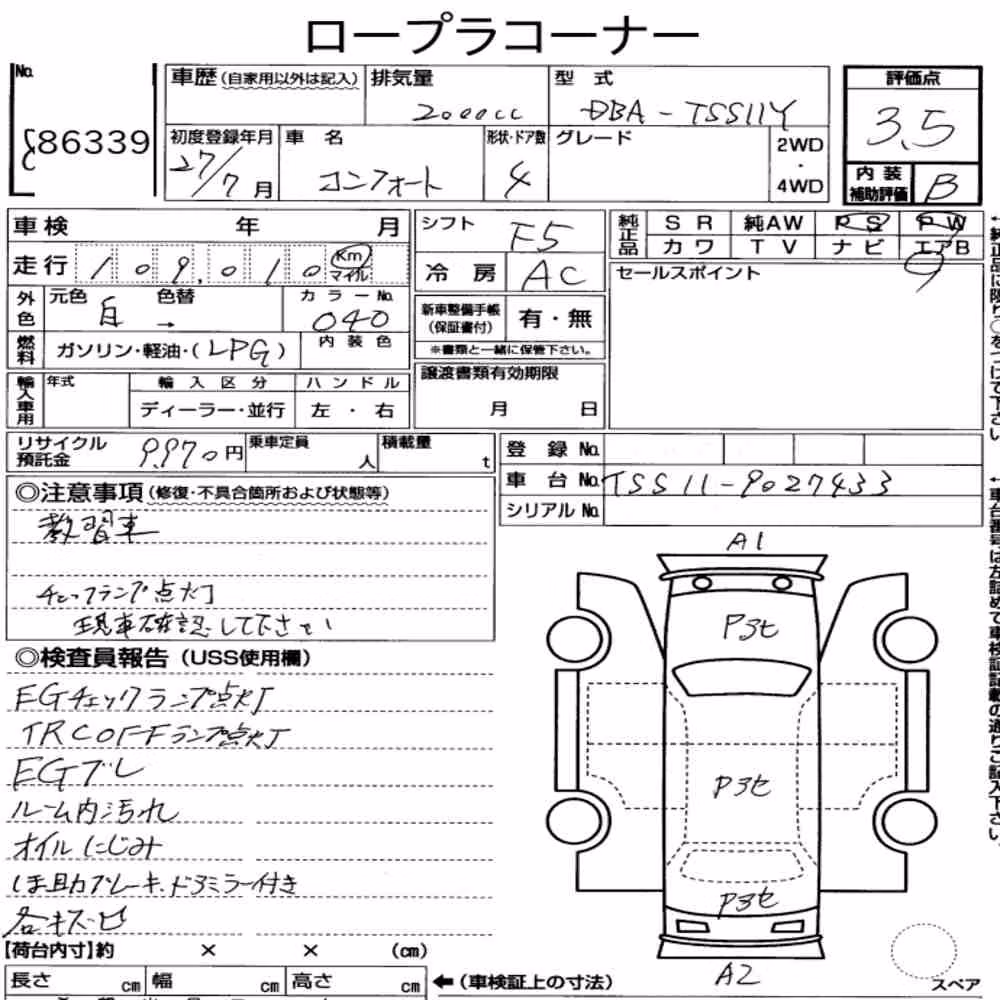 ロープラコーナー
No.
86339
車歴(自家用以外は記入)
排気量
2000cc
型 式
DBA-TSS11Y
評価点
3.5
初度登録年月
27/7月
車 名
コンフォート
形状・ドア数
4
グレード
2WD
・
4WD
内装
補助評価
B
車検 年 月
シフト
F5
純正品
SR 純AW PS PW
カワ TV ナビ エアB
走行 109,010 Km マイル
冷房
AC
セールスポイント
外色
元色 白
色替 →
カラーNo.
040
新車整備手帳
(保証書付)
有・無
※書類と一緒に保管下さい。
燃料
ガソリン・軽油・(LPG)
内装色
輸入車用
年式
輸入区分
ディーラー・並行
ハンドル
左・右
譲渡書類有効期限
月 日
リサイクル
預託金
9,970円
乗車定員
人
積載量
t
登録No.
車台No. TSS11-9027433
シリアルNo.
◎注意事項(修復・不具合箇所および状態等)
教習車
チェックランプ点灯
現車確認して下さい
◎検査員報告(USS使用欄)
EGチェックランプ点灯
TRC OFFランプ点灯
EGブレ
ルーム内汚れ
オイルにじみ
ほ助ブレーキ、ドアミラー付き
各キズ・ヒ
A1
P3セ
P3セ
P3セ
A2
スペア
【荷台内寸】約 × × (cm)
長さ cm 幅 cm 高さ cm
←(車検証上の寸法)